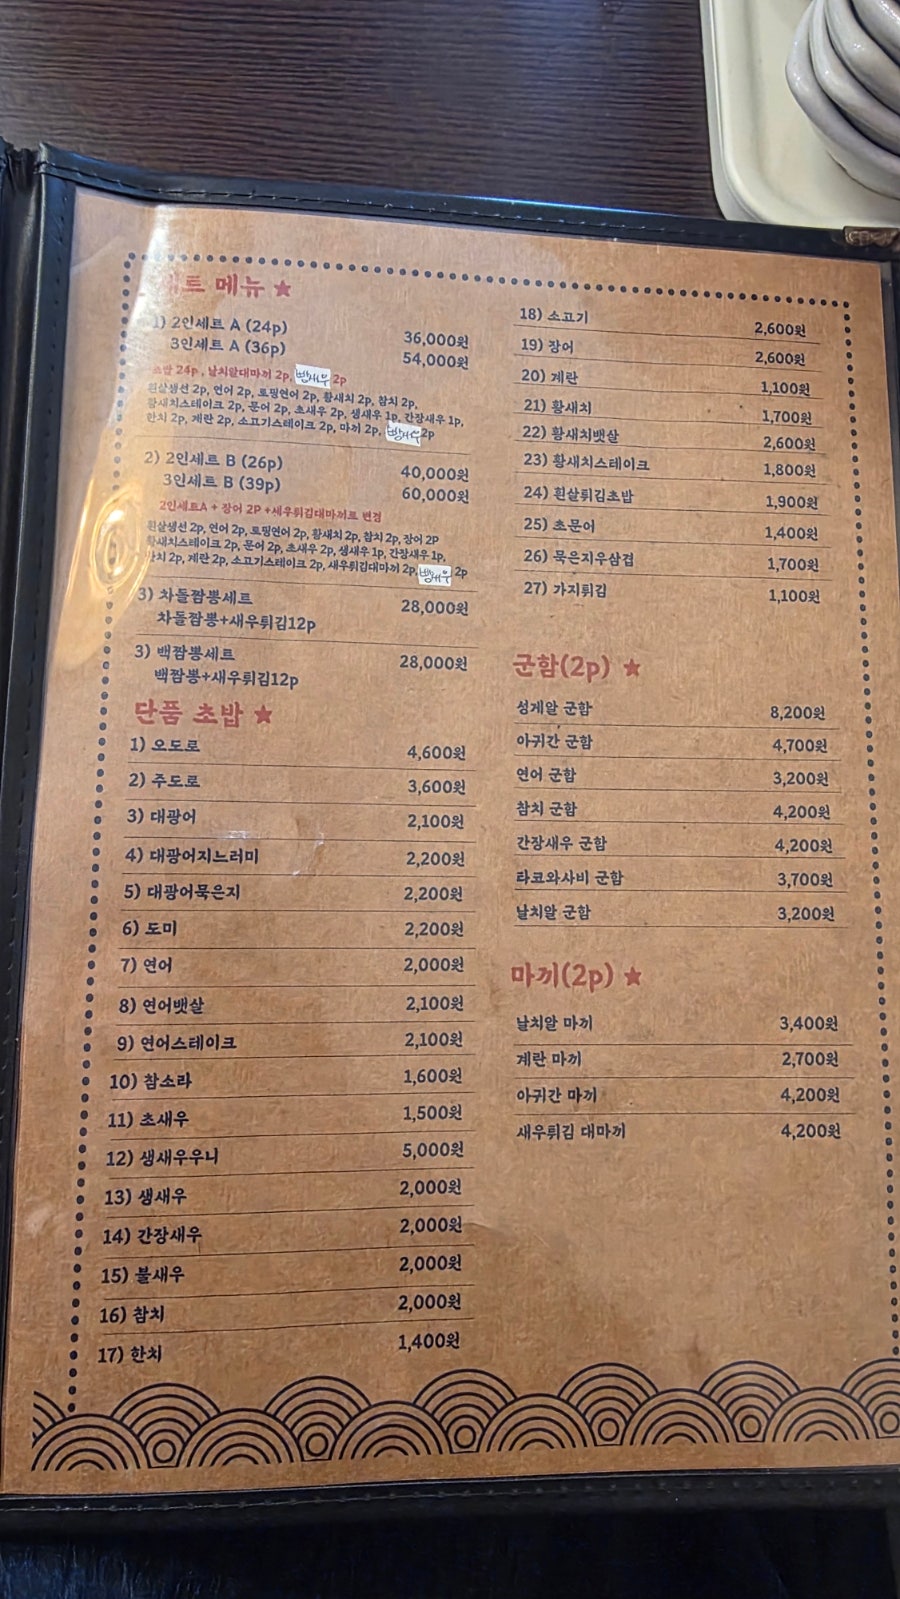 세트 메뉴 ★
1) 2인세트 A (24p) 36,000원
3인세트 A (36p) 54,000원
초밥 24p , 날치알대마끼 2p, 빵새우 2p
흰살생선 2p, 연어 2p, 토핑연어 2p, 황새치 2p, 참치 2p,
황새치스테이크 2p, 문어 2p, 초새우 2p, 생새우 1p, 간장새우 1p,
한치 2p, 계란 2p, 소고기스테이크 2p, 마끼 2p, 빵새우 2p
2) 2인세트 B (26p) 40,000원
3인세트 B (39p) 60,000원
2인세트A + 장어 2P +새우튀김대마끼로 변경
흰살생선 2p, 연어 2p, 토핑연어 2p, 황새치 2p, 참치 2p, 장어 2P
황새치스테이크 2p, 문어 2p, 초새우 2p, 생새우 1p, 간장새우 1p,
한치 2p, 계란 2p, 소고기스테이크 2p, 새우튀김대마끼 2p, 빵새우 2p
3) 차돌짬뽕세트 28,000원
차돌짬뽕+새우튀김12p
3) 백짬뽕세트 28,000원
백짬뽕+새우튀김12p
단품 초밥 ★
1) 오도로 4,600원
2) 주도로 3,600원
3) 대광어 2,100원
4) 대광어지느러미 2,200원
5) 대광어묵은지 2,200원
6) 도미 2,200원
7) 연어 2,000원
8) 연어뱃살 2,100원
9) 연어스테이크 2,100원
10) 참소라 1,600원
11) 초새우 1,500원
12) 생새우우니 5,000원
13) 생새우 2,000원
14) 간장새우 2,000원
15) 불새우 2,000원
16) 참치 2,000원
17) 한치 1,400원
18) 소고기 2,600원
19) 장어 2,600원
20) 계란 1,100원
21) 황새치 1,700원
22) 황새치뱃살 2,600원
23) 황새치스테이크 1,800원
24) 흰살튀김초밥 1,900원
25) 초문어 1,400원
26) 묵은지우삼겹 1,700원
27) 가지튀김 1,100원
군함(2p) ★
성게알 군함 8,200원
아귀간 군함 4,700원
연어 군함 3,200원
참치 군함 4,200원
간장새우 군함 4,200원
타코와사비 군함 3,700원
날치알 군함 3,200원
마끼(2p) ★
날치알 마끼 3,400원
계란 마끼 2,700원
아귀간 마끼 4,200원
새우튀김 대마끼 4,200원